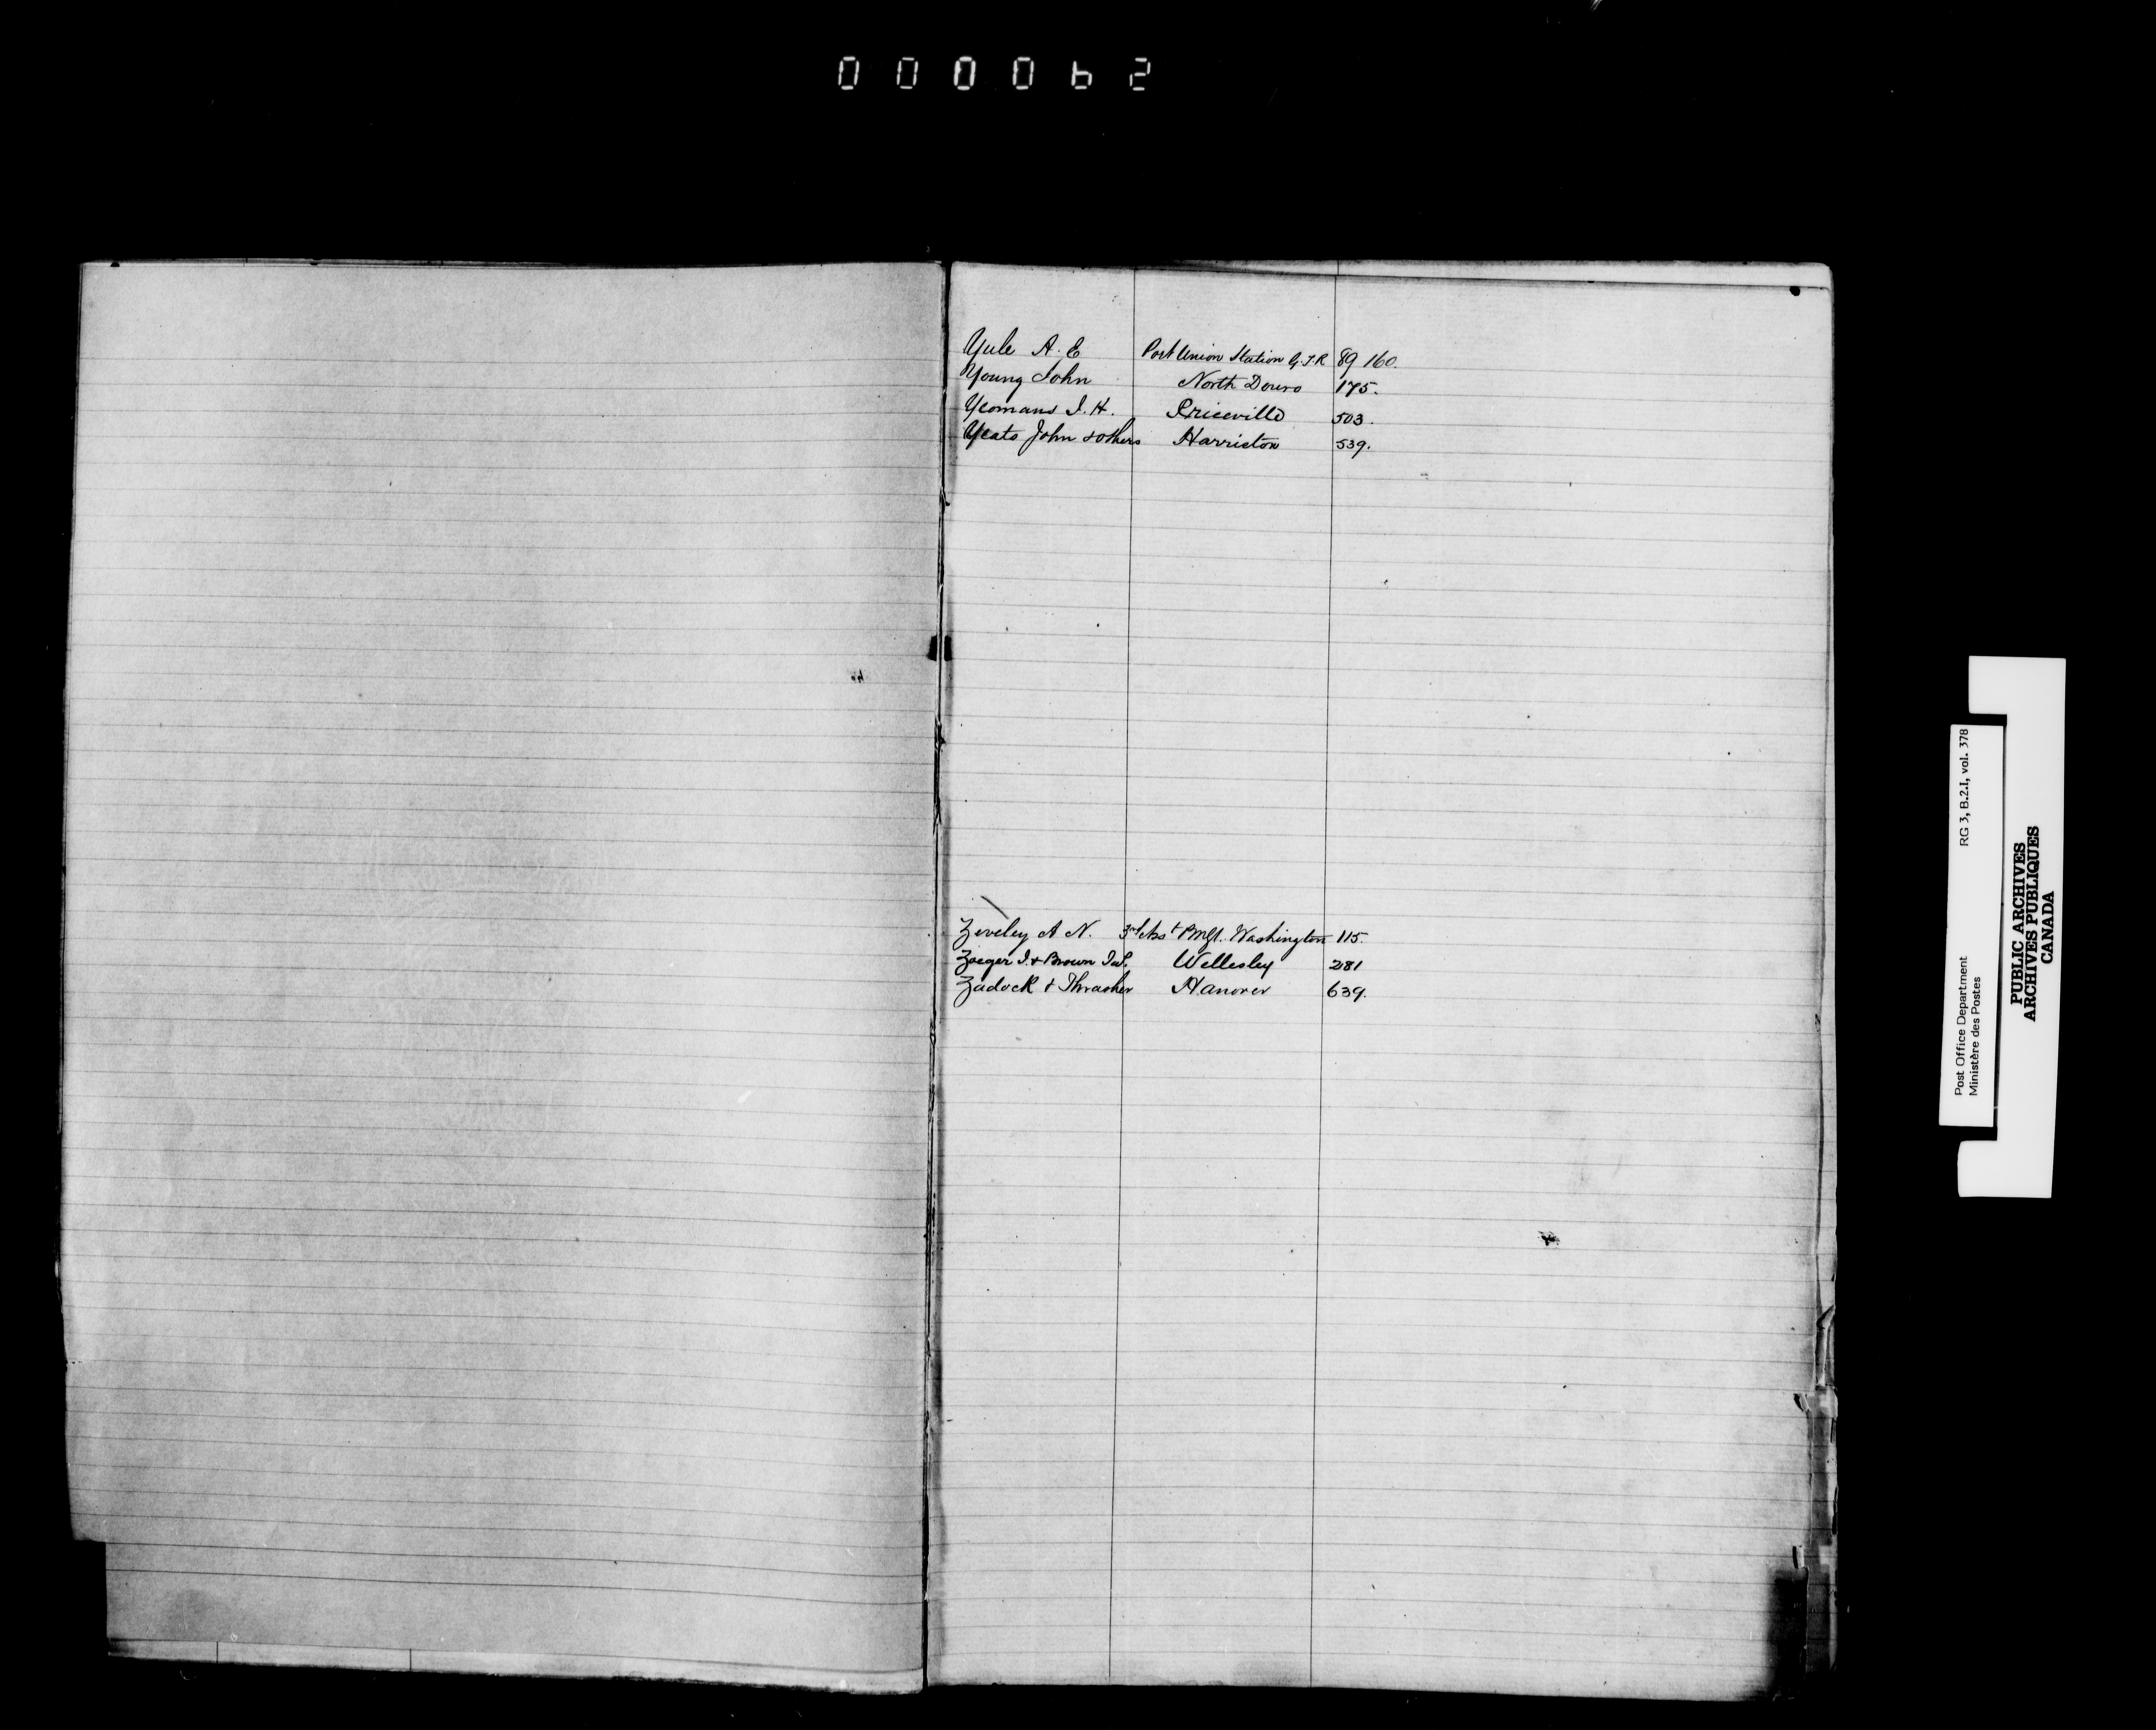 000062
Yule A. E Port Union Station G.T.R 89 160.
Young John North Douro 175.
Yeomans I. H. Priceville 503.
Yeats John & others Harriston 539.
Zeveley A N. 3rd Asst PMGl. Washington 115.
Zoeger I. & Brown Wellesley 281
Zadock & Thrasher Hanover 639.
Post Office Department RG 3, B.2.I, vol. 378
Ministère des Postes
PUBLIC ARCHIVES
ARCHIVES PUBLIQUES
CANADA